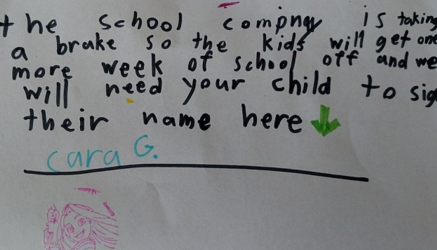 the school compny is taking
a brake so the kids will get one
more week of school off and we
will need your child to sig
their name here
cara G.